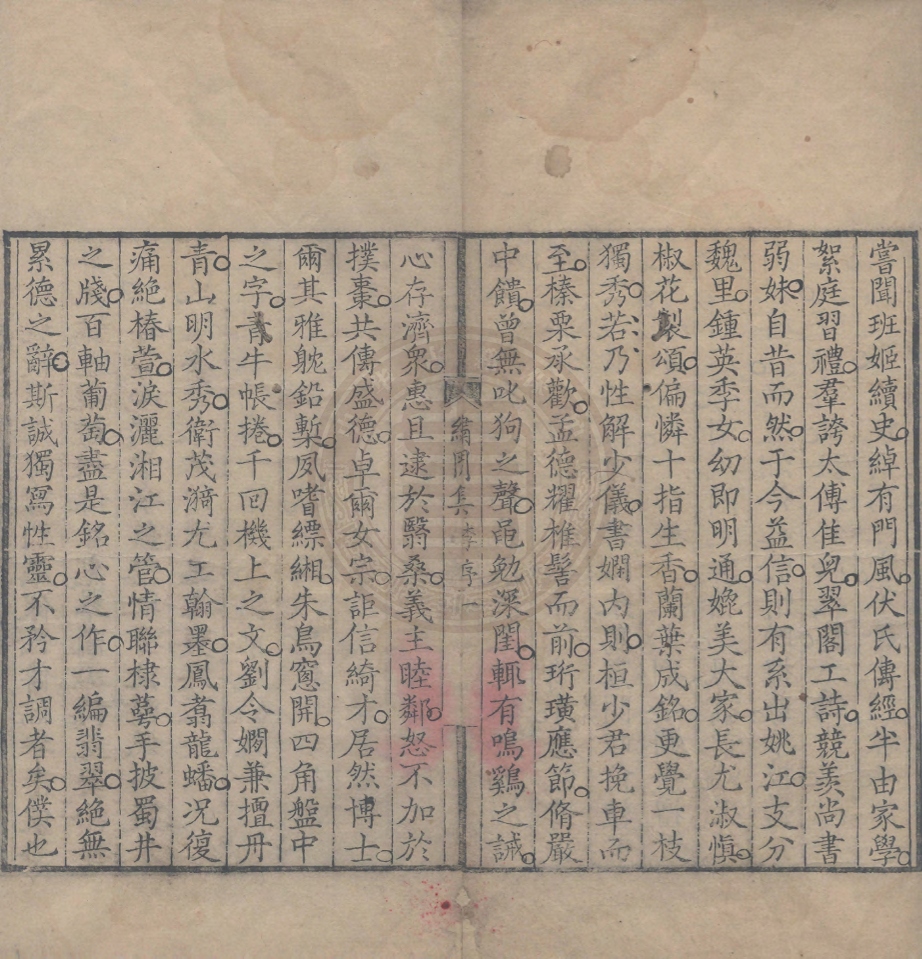 嘗聞班姬續史綽有門風伏氏傳經半由家學
絮庭習禮羣誇太傅佳兒翠閣工詩競羡尚書
弱妹自昔而然于今益信則有系出姚江支分
魏里鍾英季女幼即明通媲美大家長尤淑慎
椒花製頌偏憐十指生香蘭葉成銘更覺一枝
獨秀若乃性解少儀書嫻内則桓少君挽車而
至榛栗承歡孟德耀椎髻而前珩璜應節脩嚴
中饋曾無叱狗之聲黽勉深閨輒有鳴鷄之誡
繡閒集 李序 一
心存濟衆惠且逮於翳桑義主睦鄰怒不加於
撲棗共傳盛德卓爾女宗詎信綺才居然博士
爾其雅躭鉛槧夙嗜縹緗朱鳥窻開四角盤中
之字青牛帳捲千回機上之文劉令嫺兼擅丹
青山明水秀衛茂漪尤工翰墨鳳翥龍蟠况復
痛絶椿萱淚灑湘江之管情聯棣萼手披蜀井
之牋百軸葡萄盡是銘心之作一編翡翠絶無
累德之辭斯誠獨寫性靈不矜才調者矣僕也